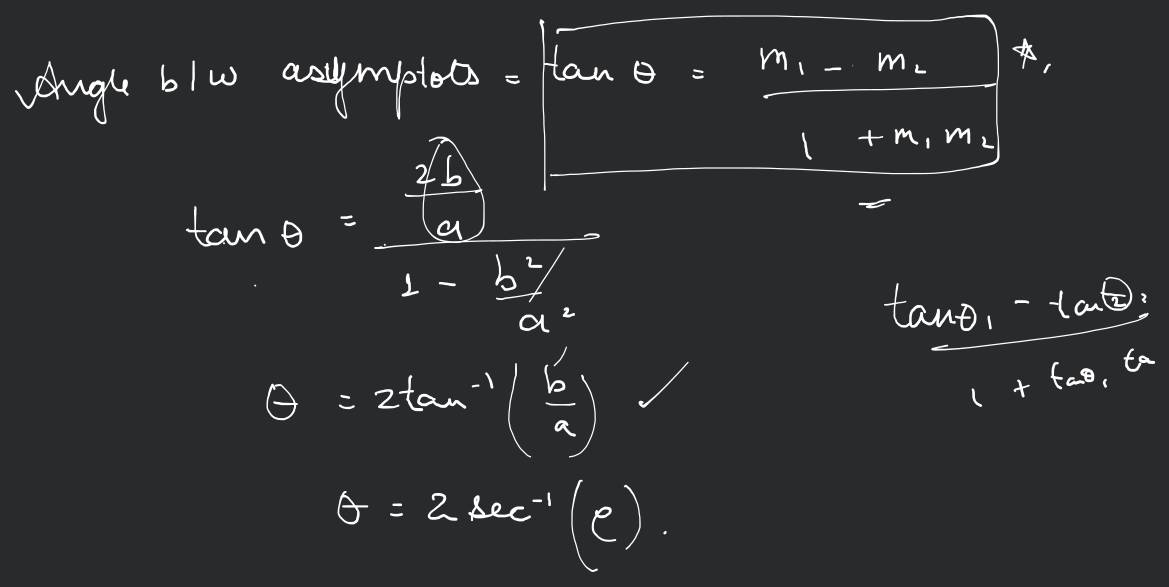 Angle b/w asymptots = tan θ = (m₁ - m₂) / (1 + m₁ m₂) *,
tan θ = (2b/a) / (1 - b²/a²)
tanθ₁ - tanθ₂ / 1 + tanθ₁ ta
θ = 2tan⁻¹ (b/a) ✓
θ = 2 sec⁻¹ (e).